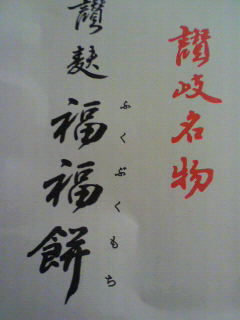 讃岐名物
讃麸
福福餅
ふくぶくもち